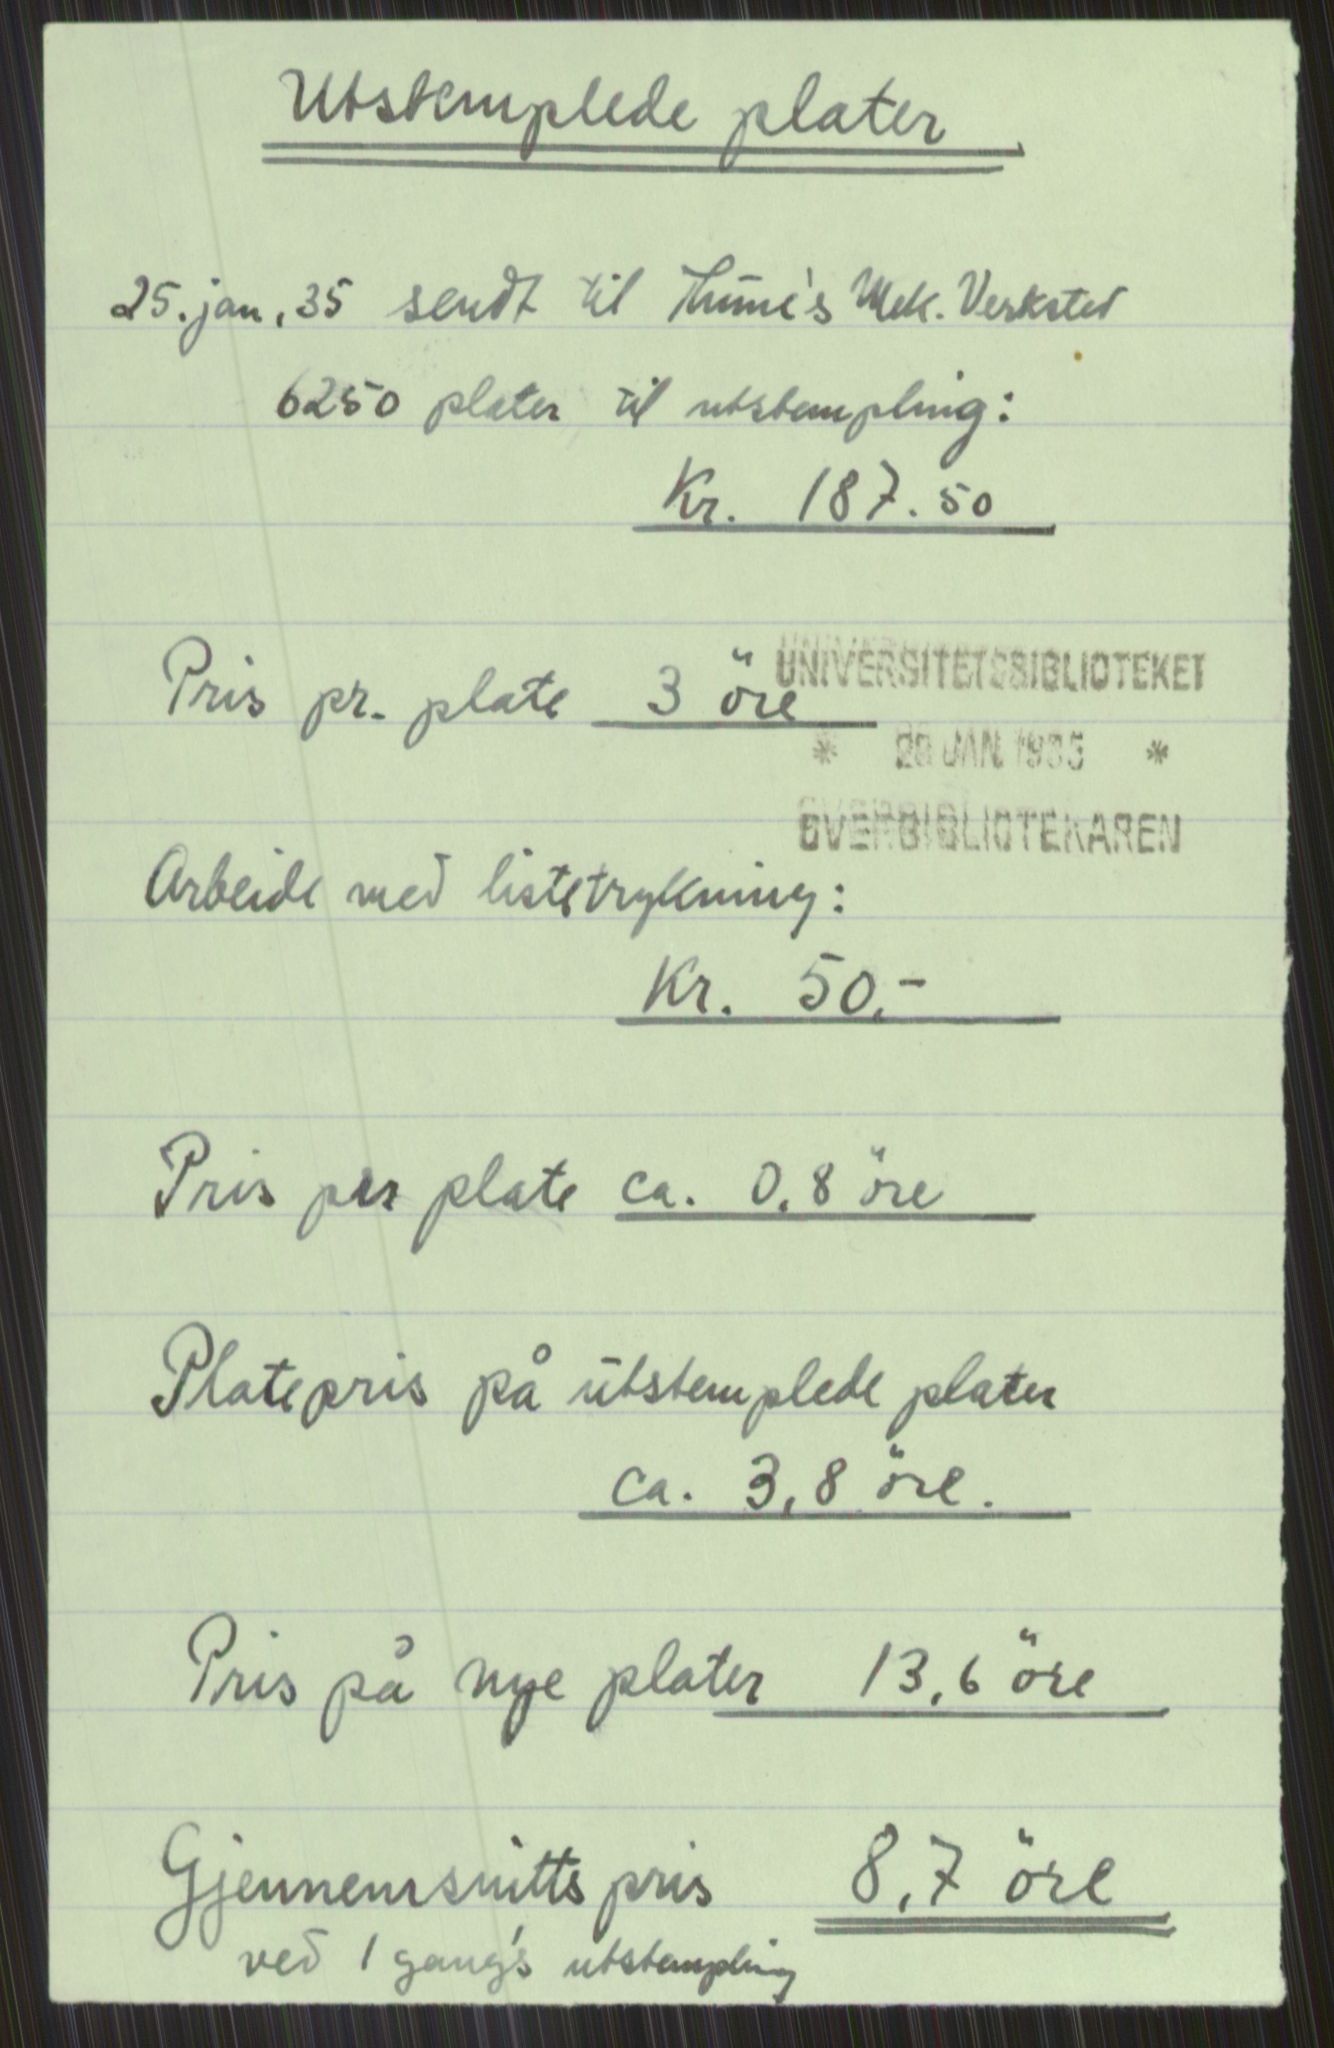 Utstemplede plater
25. jan. 35 sendt til Thune's Mek. Verksted
6250 plater til utstempling:
Kr. 187.50
Pris pr. plate 3 öre
UNIVERSITETSBIBLIOTEKET
* JAN. 1935 *
OVERBIBLIOTEKAREN
Arbeide med listetrykning:
Kr. 50.-
Pris per plate ca. 0,8 öre
Platepris på utstemplede plater
ca. 3,8 öre.
Pris på nye plater 13,6 öre
Gjennemsnittspris 8,7 öre
ved 1 gang's utstempling